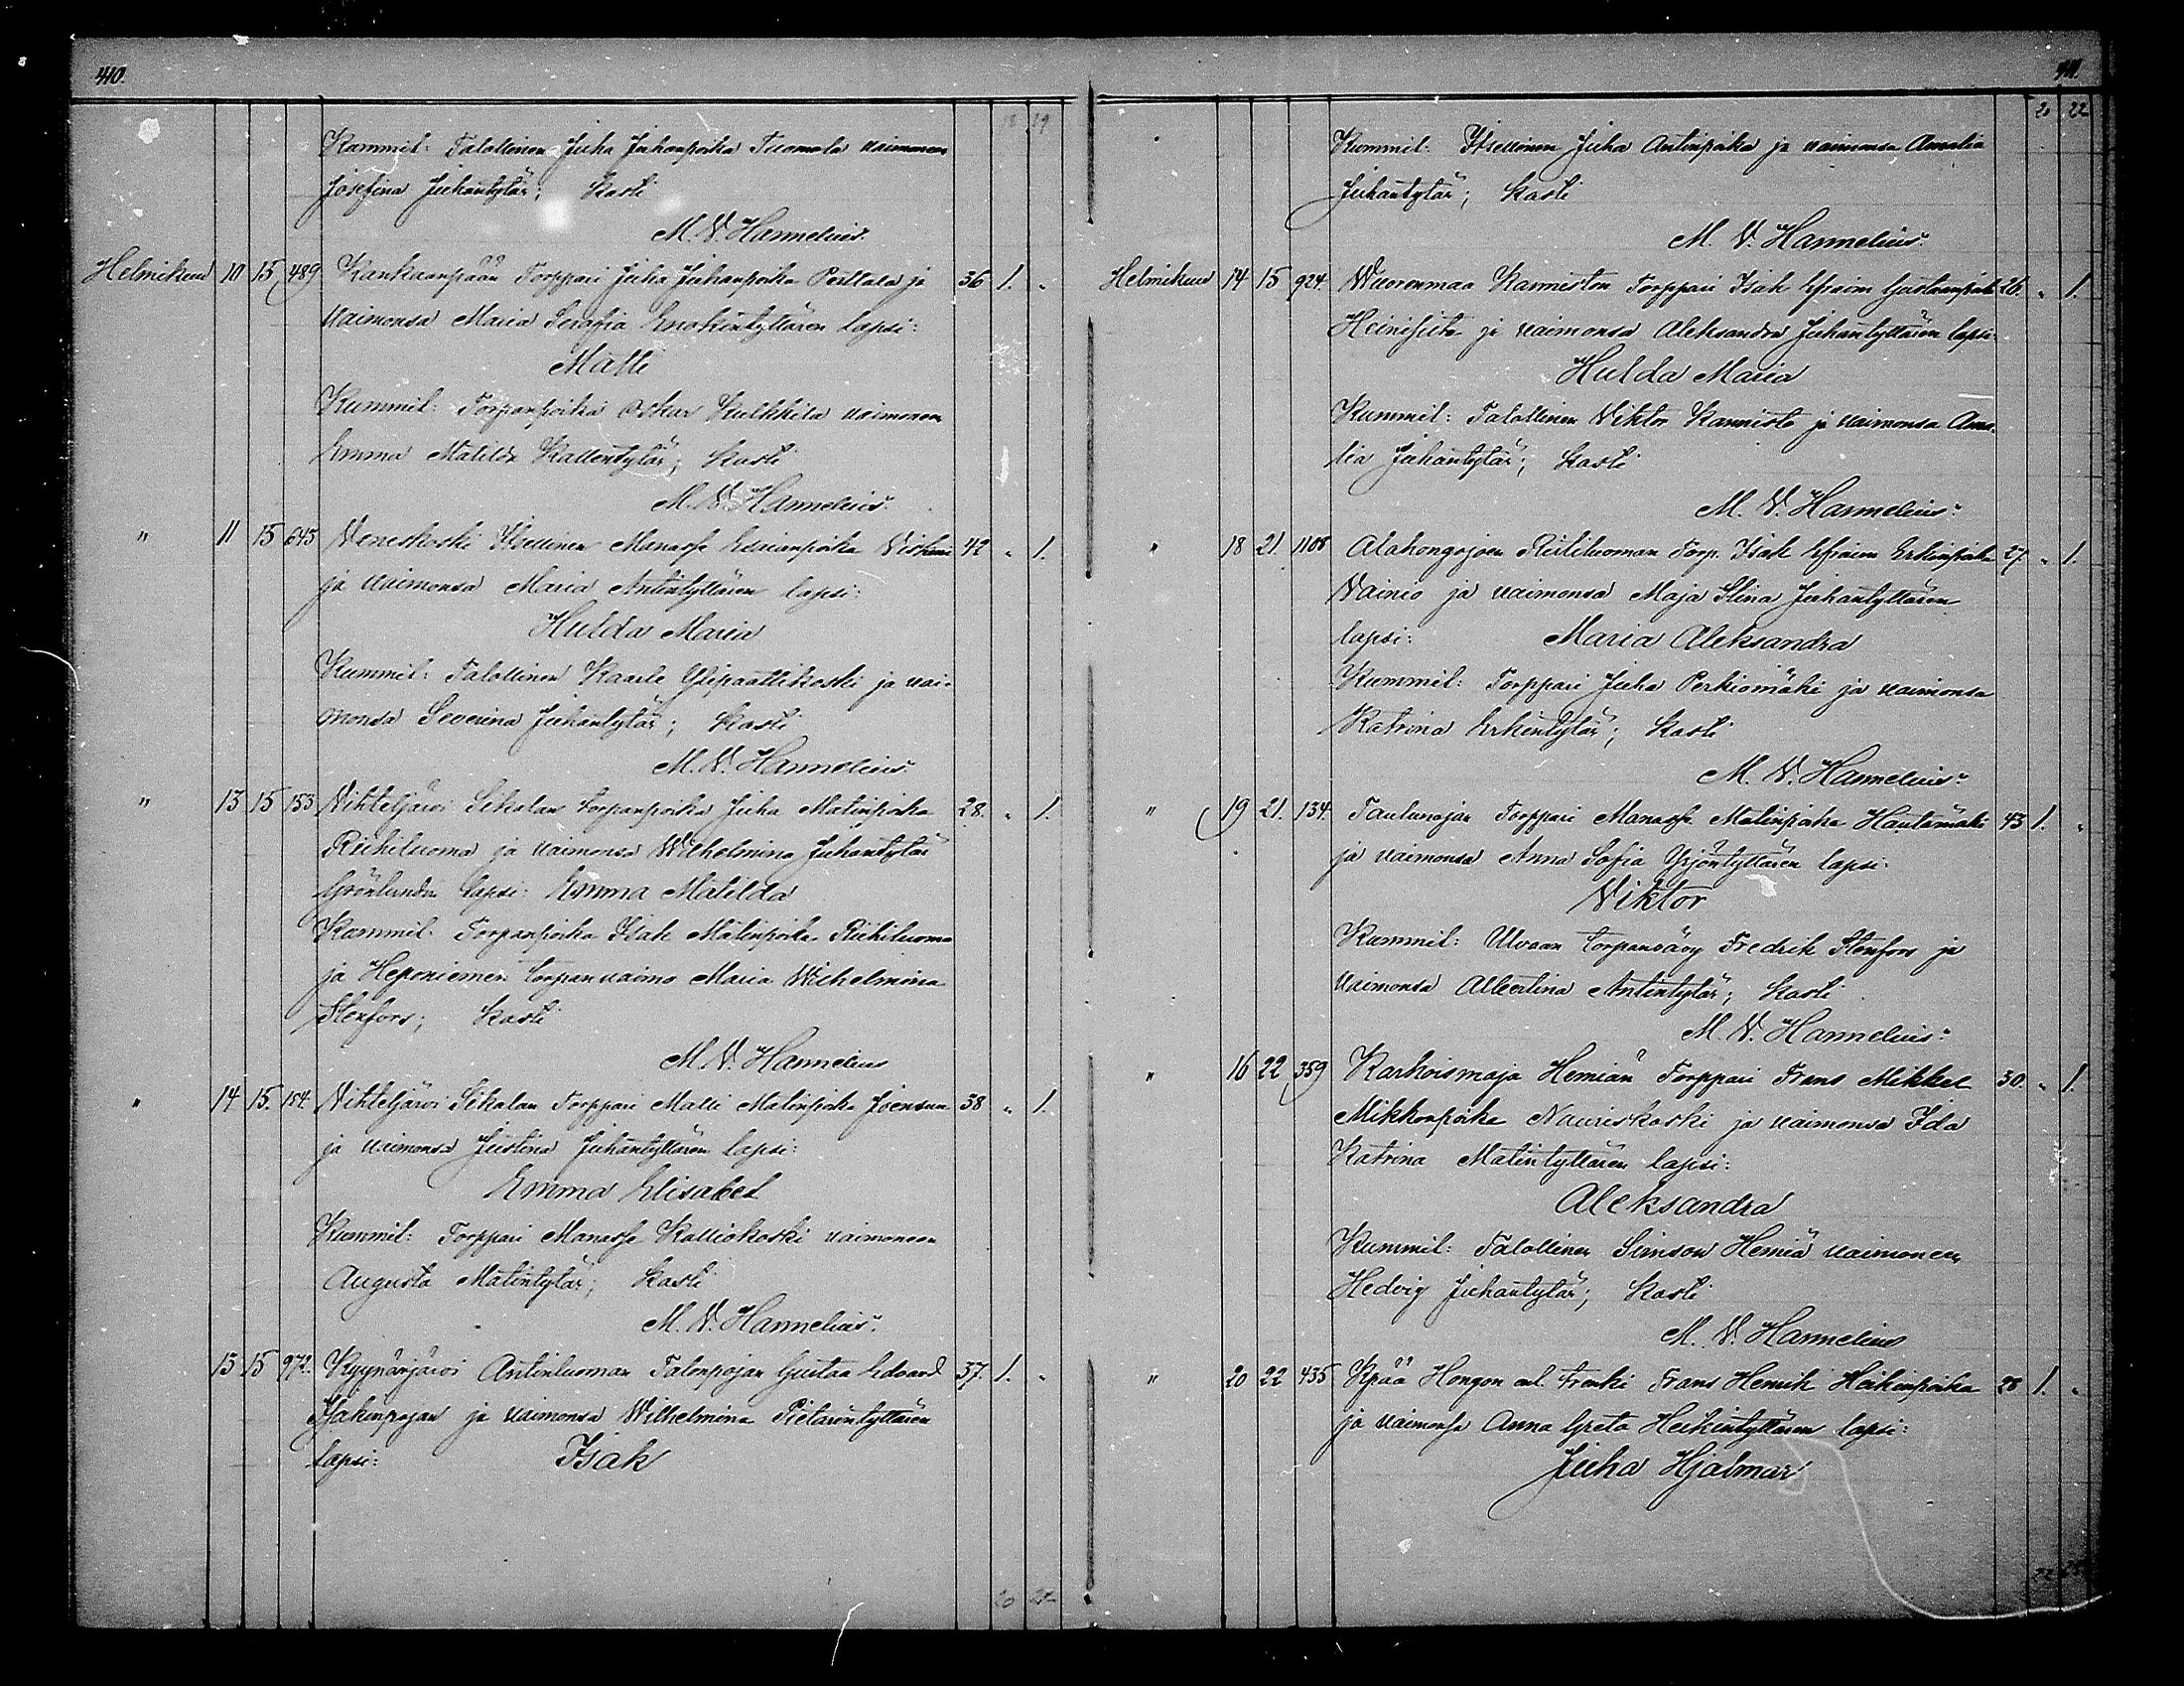 410.
18 19
Kummit: Talollinen Juha Juhanpoika Tuomola vaimoneen
Josefina Juhantytär; Kasti
M. V. Hannelius.
Helmikuu 10 15 489 Kankaanpään Torppari Juha Juhanpoika Perttala ja 36 1. "
vaimonsa Maria Serafia Enokintyttären lapsi:
Matti
Kummit: Torpanpoika Oskar Kulkkila vaimoneen
Emma Matilda Kallentytär; Kasti
M. V. Hannelius.
" 11 15 645 Veneskoski Itsellinen Manasse Esaianpoika 42 " 1.
ja vaimonsa Maria Antintyttären lapsi:
Hulda Maria
Kummit: Talollinen Kaarle Ylipaattikoski ja vai-
monsa Severina Juhantytär; Kasti
M. V. Hannelius.
" 13 15 153 Vihteljärvi Sikalan torpanpoika Juha Matinpoika 28. " 1.
Riihiluoma ja vaimonsa Wilhelmina Juhantytär
Grönlundin lapsi: Emma Matilda
Kummit: Torpanpoika Isak Matinpoika Riihiluoma
ja Heponiemen torpanvaimo Maria Wilhelmina
Stenfors; Kasti
M. V. Hannelius
" 14 15. 154. Vihteljärvi Sikalan Torppari Matti Matinpoika Joensuu 38 " 1.
ja vaimonsa Justina Juhantyttären lapsi:
Emma Elisabet
Kummit: Torppari Manasse Kalliokoski vaimoneen
Augusta Matintytär; Kasti
M. V. Hannelius.
15 15 972. Kyynärjärvi Antinluoman Talonpojan Gustaa Edvard 37. 1. "
Isakinpojan ja vaimonsa Wilhelmina Pietarintyttären
lapsi: Isak
20 22
411.
20 22
Kummit: Itsellinen Juha Antinpoika ja vaimonsa Amalia
Juhantytär; Kasti
M. V. Hannelius.
Helmikuu 14 15 924. Wuorenmaa Kanniston Torppari Isak Efraim Gustaanpoika 26. " 1.
ja vaimonsa Aleksandra Juhantyttären lapsi:
Hulda Maria
Kummit: Talollinen Viktor Kannisto ja vaimonsa Ama-
lia Juhantytär; Kasti
M. V. Hannelius.
" 18 21. 1108 Alahongojoen Riitiluoman Torp. Isak Efraim Erkinpoika 27. " 1.
Vainio ja vaimonsa Maja Stina Juhantyttären
lapsi: Maria Aleksandra
Kummit: Torppari Juha Perkiomäki ja vaimonsa
Katrina Erkintytär; Kasti
M. V. Hannelius.
" 19 21. 134. Taulunojan Torppari Manasse Matinpoika Hautamäki 43 1. "
ja vaimonsa Anna Sofia Yrjöntyttären lapsi:
Viktor
Kummit: Ulvaan torpanvävy Fredrik Stenfors ja
vaimonsa Albertina Antintytär; Kasti
M. V. Hannelius.
" 16 22 359 Karhoismaja Hemiän Torppari Frans Mikkel 30. " 1.
Mikkonpoika Nauriskoski ja vaimonsa Ida
Katrina Matintyttären lapsi:
Aleksandra
Kummit: Talollinen Simson Hemiä vaimoneen
Hedvig Juhantytär; Kasti
M. V. Hannelius
" 20 22 435 Kpää Hongon ent. trenki Frans Henrik Heikinpoika 28 1. "
ja vaimonsa Anna Greta Heikintyttären lapsi:
Juha Hjalmar
22 25